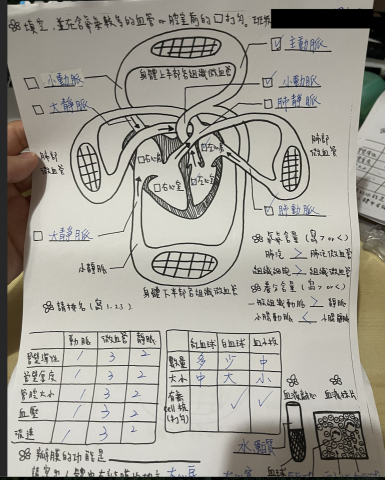 填空,並在含氧量較多的血管or腔室前的□打勾。班級
☑ 主動脈
身體上半部器官組織微血管
□ 小動脈
☑ 小動脈
□ 大靜脈
☑ 肺靜脈
肺部
微血管
肺部
微血管
□右心房
☑左心房
□右心室
☑左心室
☑ 肺動脈
□ 大靜脈
小靜脈
身體下半部器官組織微血管
氧氣含量(寫>or<)
肺泡 > 肺泡微血管
組織細胞 > 組織微血管
養分含量(寫>or<)
一般組織動脈 > 靜脈
小腸動脈 < 小腸靜脈
請排名(寫1.2.3.)
動脈 微血管 靜脈
管壁彈性 1 3 2
管壁厚度 1 3 2
管腔大小 1 3 2
血壓 1 3 2
流速 1 3 2
紅血球 白血球 血小板
數量 多 少 中
大小 中 大 小
有無cell核(打勾) ✓ ✓
血液離心
血液抹片
瓣膜的功能是
血球